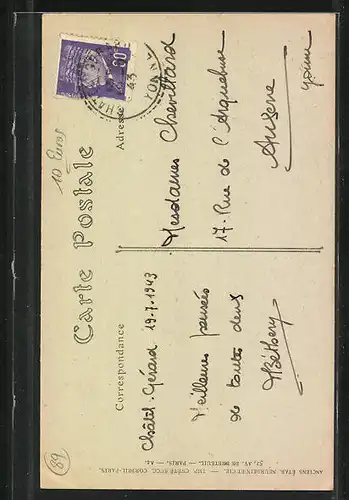 Carte Postale
Correspondance
Adresse
Châtel-Gérard 19-7-1943
Meilleures pensées
de toutes deux
Mesdames Chevillard
17. Rue de l'Arquebuse
Auxerre
Yonne
10 Euros
89
YONNE
43
ANCIENS ÉTAB. NEURDEIN ET CIE — IMP. CRÉTÉ SUCC. CORBEIL-PARIS.
52, AV. DE BRETEUIL — PARIS. —